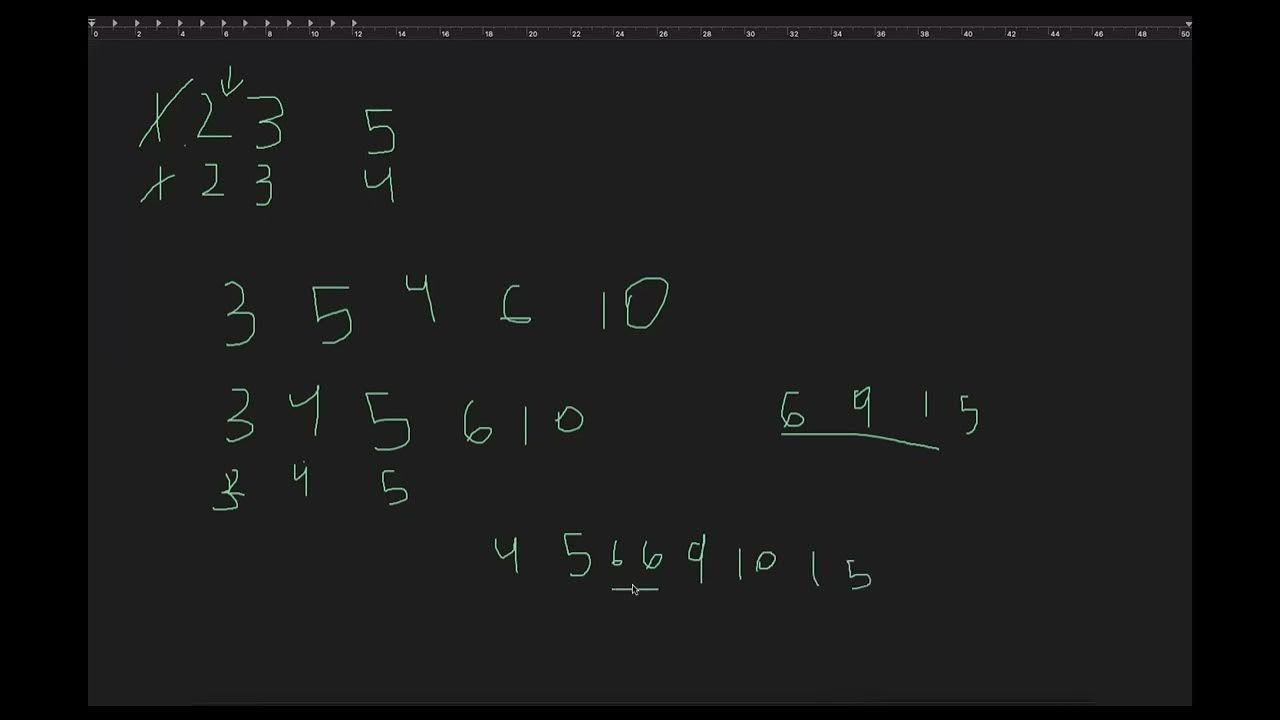 0 2 4 6 8 10 12 14 16 18 20 22 24 26 28 30 32 34 36 38 40 42 44 46 48 50
1 2 3 5
1 2 3 4
3 5 4 6 10
3 4 5 6 10 6 9 15
3 4 5
4 5 6 6 9 10 15